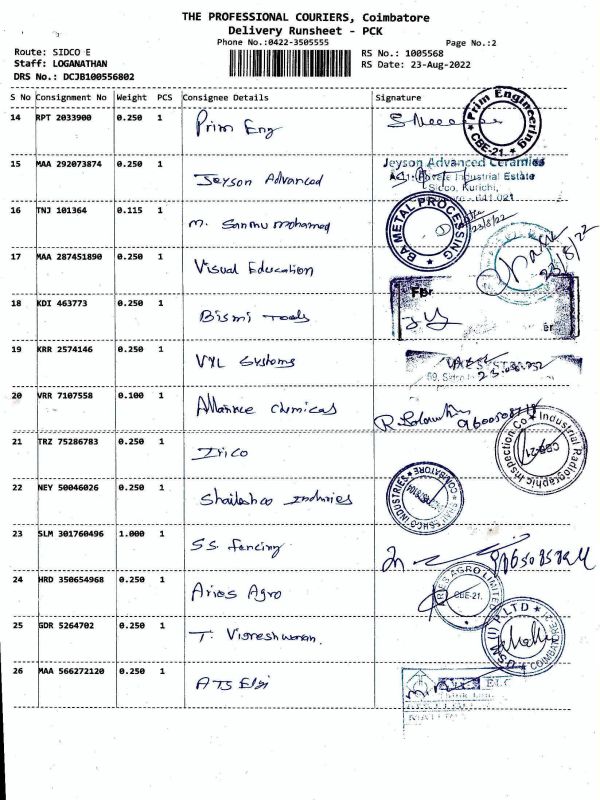 THE PROFESSIONAL COURIERS, Coimbatore
Delivery Runsheet - PCK
Phone No.:0422-3505555
Page No.:2
Route: SIDCO E
RS No.: 1005568
Staff: LOGANATHAN
RS Date: 23-Aug-2022
DRS No.: DCJB100556802
S No Consignment No Weight PCS Consignee Details Signature
14 RPT 2033900 0.250 1 Prim Eng
Prim Engineering CBE-21.
15 MAA 292073874 0.250 1 Jeyson Advanced
Jeyson Advanced Ceramics
Private Industrial Estate
Sidco, Kurichi,
641 021
16 TNJ 101364 0.115 1 M. Sanmu mohamed
BA METAL PROCESSING
23/8/22
17 MAA 287451890 0.250 1 Visual Education
23/8/22
18 KDI 463773 0.250 1 Bismi Tools
19 KRR 2574146 0.250 1 VXL Systems
20 VRR 7107558 0.100 1 Alliance chemicals
21 TRZ 75286783 0.250 1 Irico
Industrial Radiographic Inspection Co CBE-21
22 NEY 50046026 0.250 1 Shaileshco Industries
INDUSTRIES COIMBATORE
23 SLM 301760496 1.000 1 S.S. fencing
24 HRD 350654968 0.250 1 Aries Agro
ARIES AGRO LIMITED CBE-21.
25 GDR 5264702 0.250 1 T. Vigneshwaran.
USN (I) P LTD COIMBATORE-21
26 MAA 566272120 0.250 1 ATS Elgi